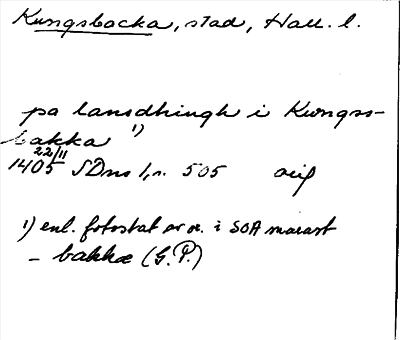 Kungsbacka, stad, Hall. l.
pa lansdhingh i Kwngss-
bakka 1)
1405 22/11 SDns 1, s. 505 avs
1) enl. fotostat av or. i SOA snarast
- bakkæ (G.P.)